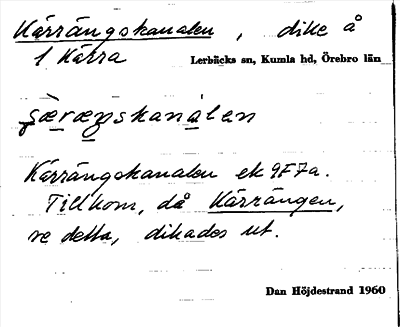 Kärrängskanalen, dike å
1 Kärra Lerbäcks sn, Kumla hd, Örebro län
Kärrängskanalen ek 9F7a.
Tillkom, då Kärrängen,
se detta, dikades ut.
Dan Höjdestrand 1960